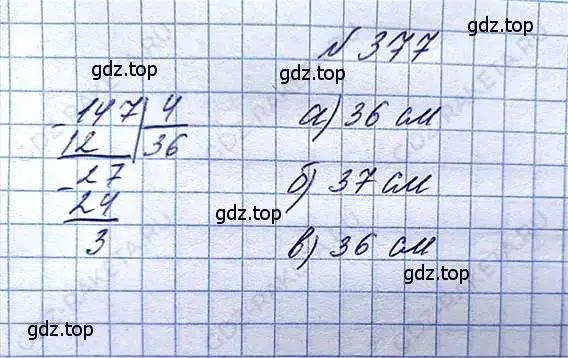 № 377
gdz.top
gdz.top
147 | 4
12 | 36
27
24
3
а) 36 см
gdz.top
б) 37 см
gdz.top
в) 36 см
gdz.top
gdz.top
gdz.top
GDZ-RAKETA.RU